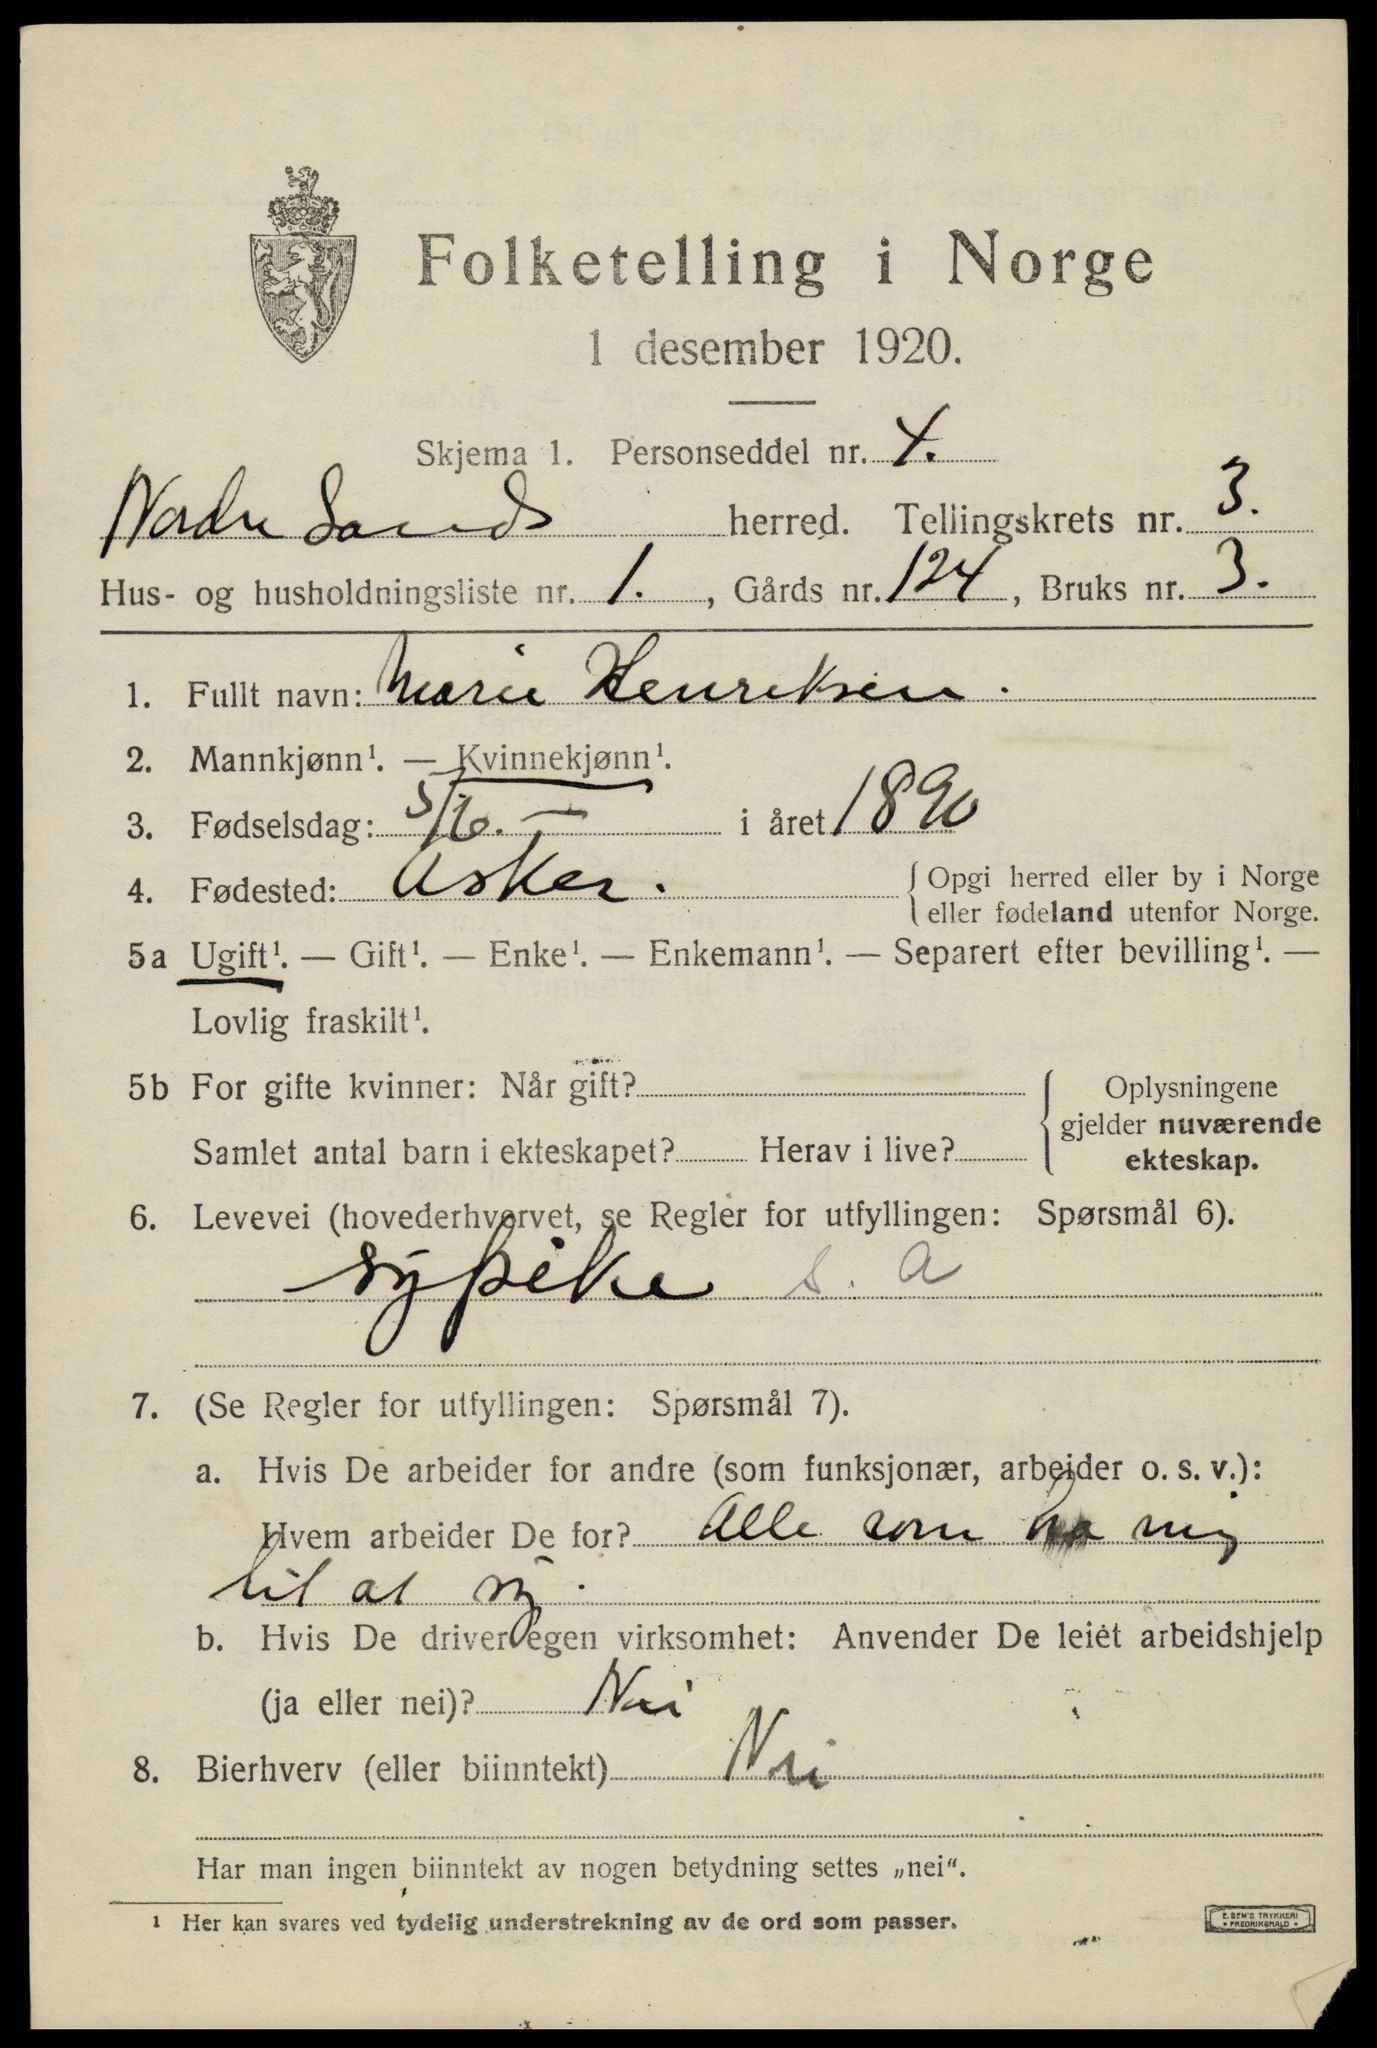 Folketelling i Norge
1 desember 1920.
Skjema 1. Personseddel nr. 4.
Nordre Sands herred. Tellingskrets nr. 3.
Hus- og husholdningsliste nr. 1., Gårds nr. 124, Bruks nr. 3.
1. Fullt navn: Marie Henriksen.
2. Mannkjønn¹. — Kvinnekjønn¹.
3. Fødselsdag: 5/6. — i året 1890
4. Fødested: Asker. { Opgi herred eller by i Norge
eller fødeland utenfor Norge.
5a Ugift¹. — Gift¹. — Enke¹. — Enkemann¹. — Separert efter bevilling¹. —
Lovlig fraskilt¹.
5b For gifte kvinner: Når gift? { Oplysningene
gjelder nuværende
Samlet antal barn i ekteskapet? Herav i live? ekteskap.
6. Levevei (hovederhvervet, se Regler for utfyllingen: Spørsmål 6).
sypike s. a
7. (Se Regler for utfyllingen: Spørsmål 7).
a. Hvis De arbeider for andre (som funksjonær, arbeider o. s. v.):
Hvem arbeider De for? Alle som ha mig
til at sy.
b. Hvis De driver egen virksomhet: Anvender De leiet arbeidshjelp
(ja eller nei)? Nei
8. Bierhverv (eller biinntekt) Nei
Har man ingen biinntekt av nogen betydning settes „nei“.
¹ Her kan svares ved tydelig understrekning av de ord som passer.
E. SEM'S TRYKKERI
• FREDRIKSHALD •